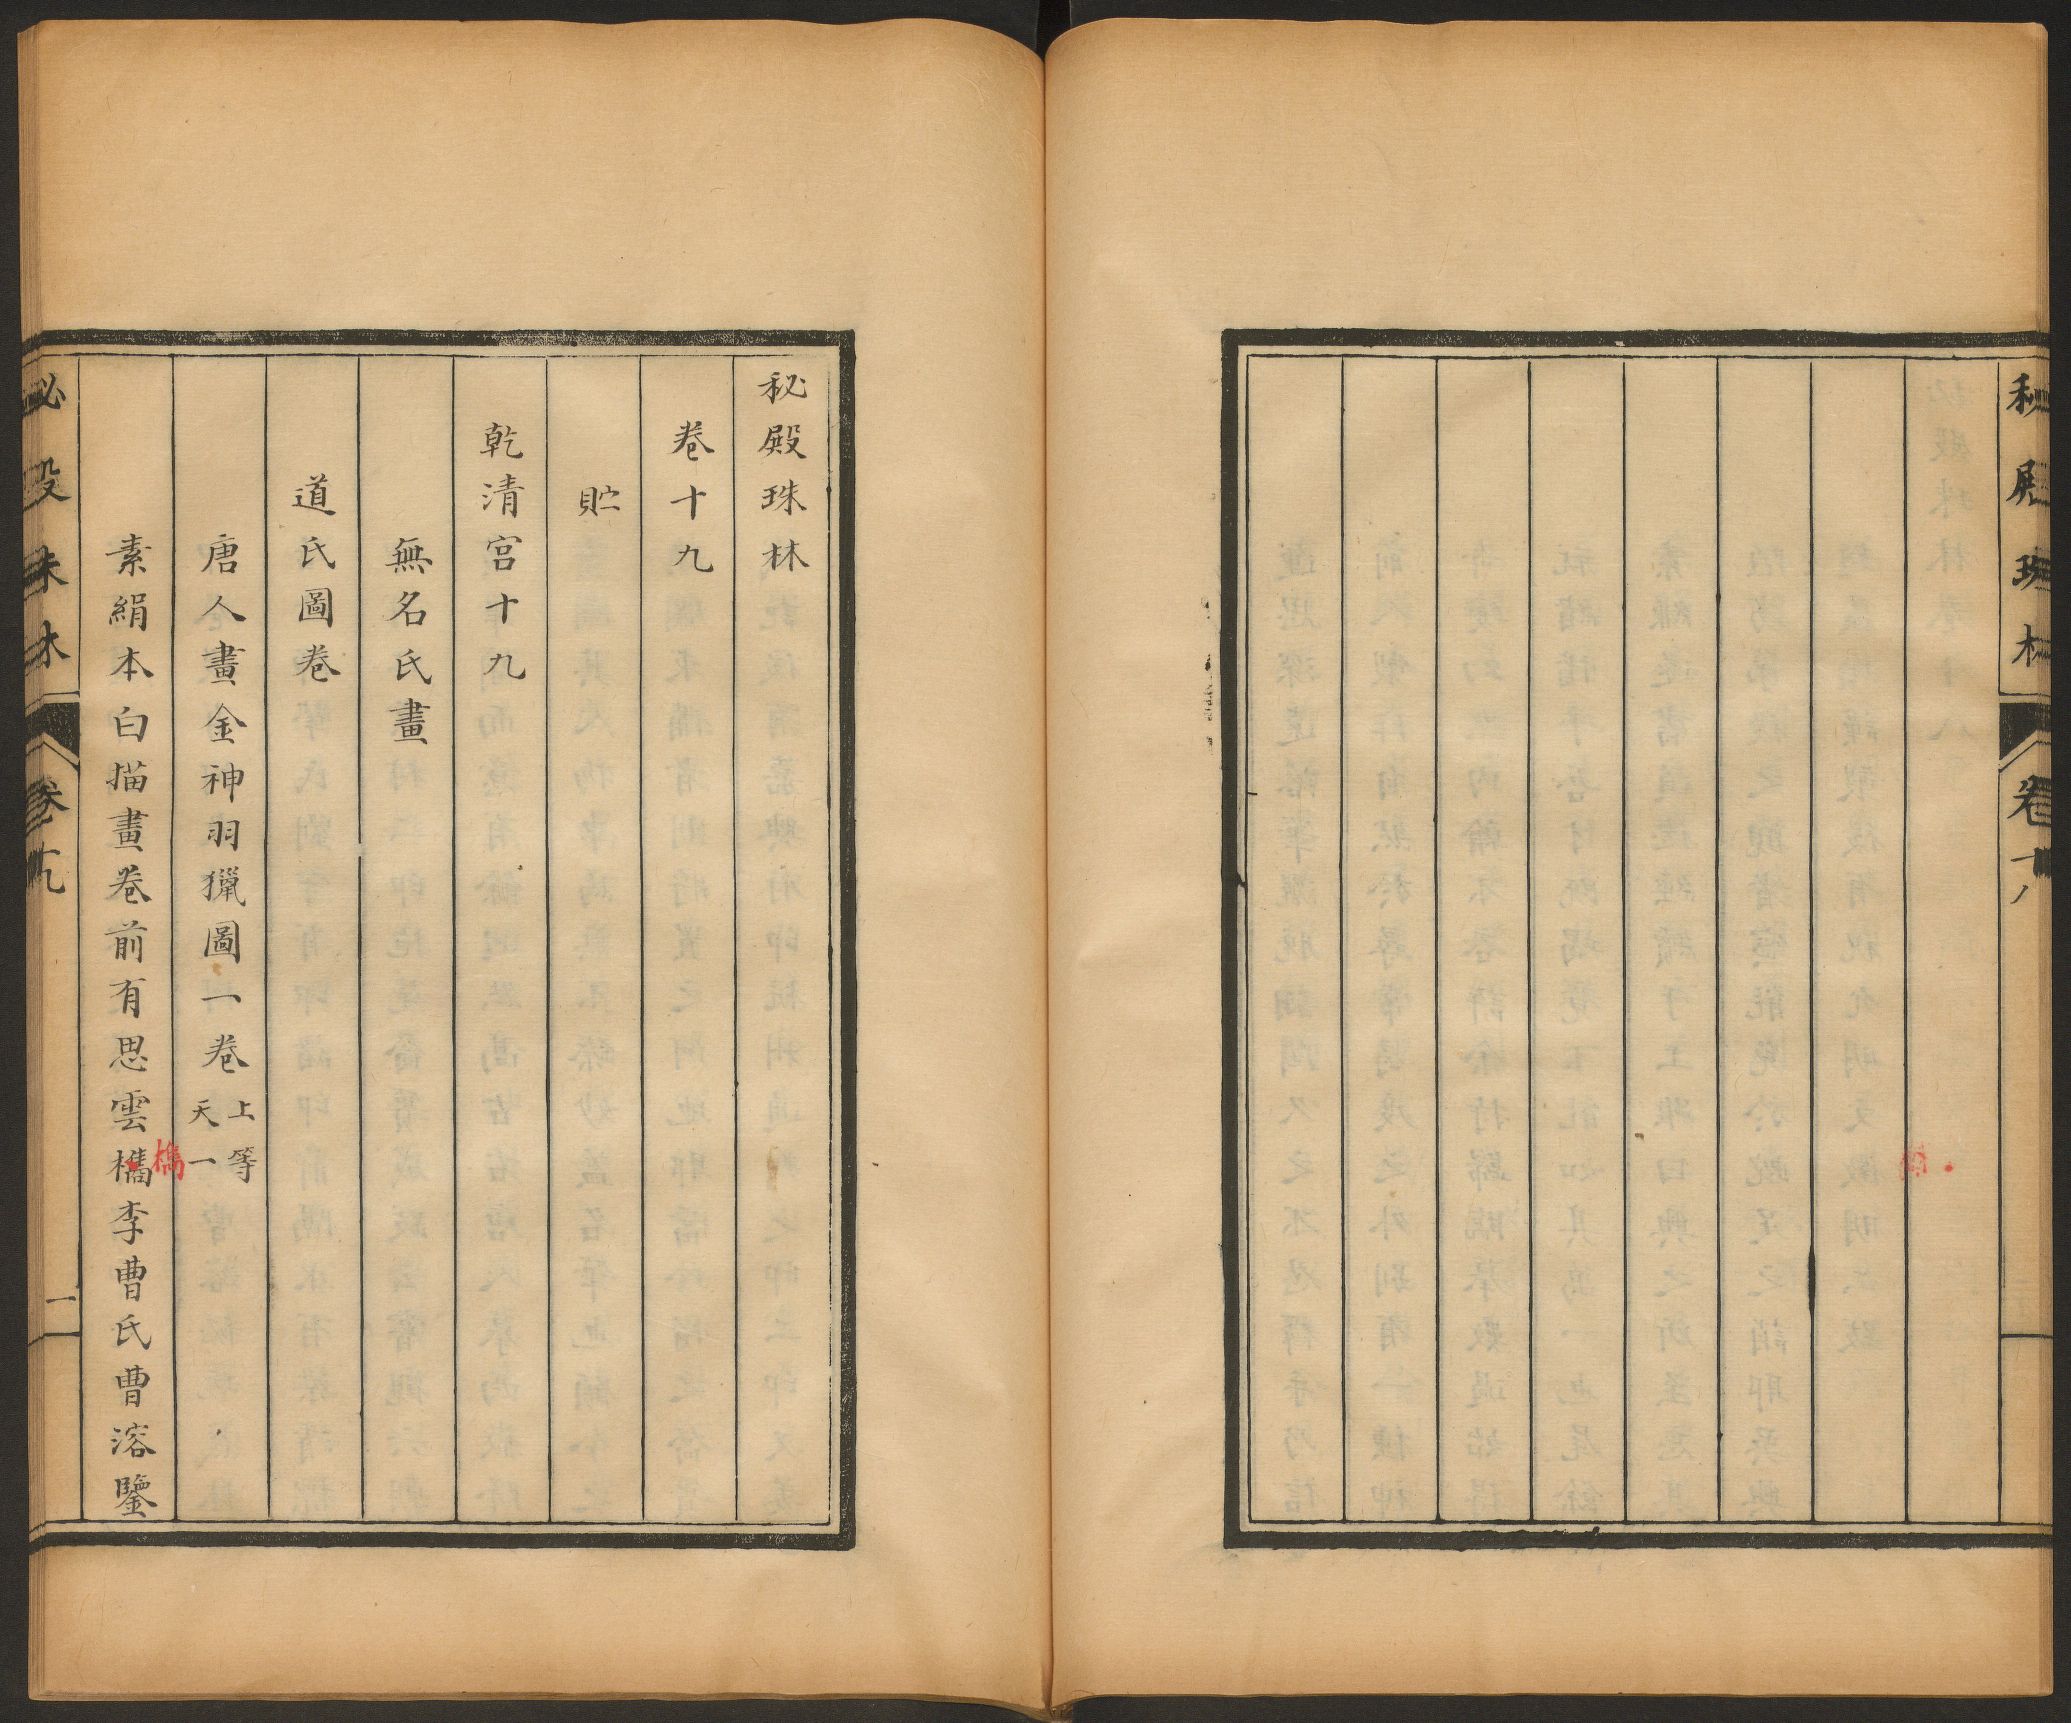 秘殿珠林
卷十八
秘殿珠林
卷十九
貯
乾清宮十九
無名氏畫
道氏圖卷
唐人畫金神羽獵圖一卷 上等 天一
素絹本白描畫卷前有思雲檇李曹氏曹溶鑒
檇
秘殿珠林
卷十九
一